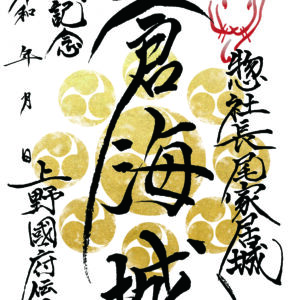 惣社長尾家居城
倉海城
上野國府伝
記念
令和 年 月 日